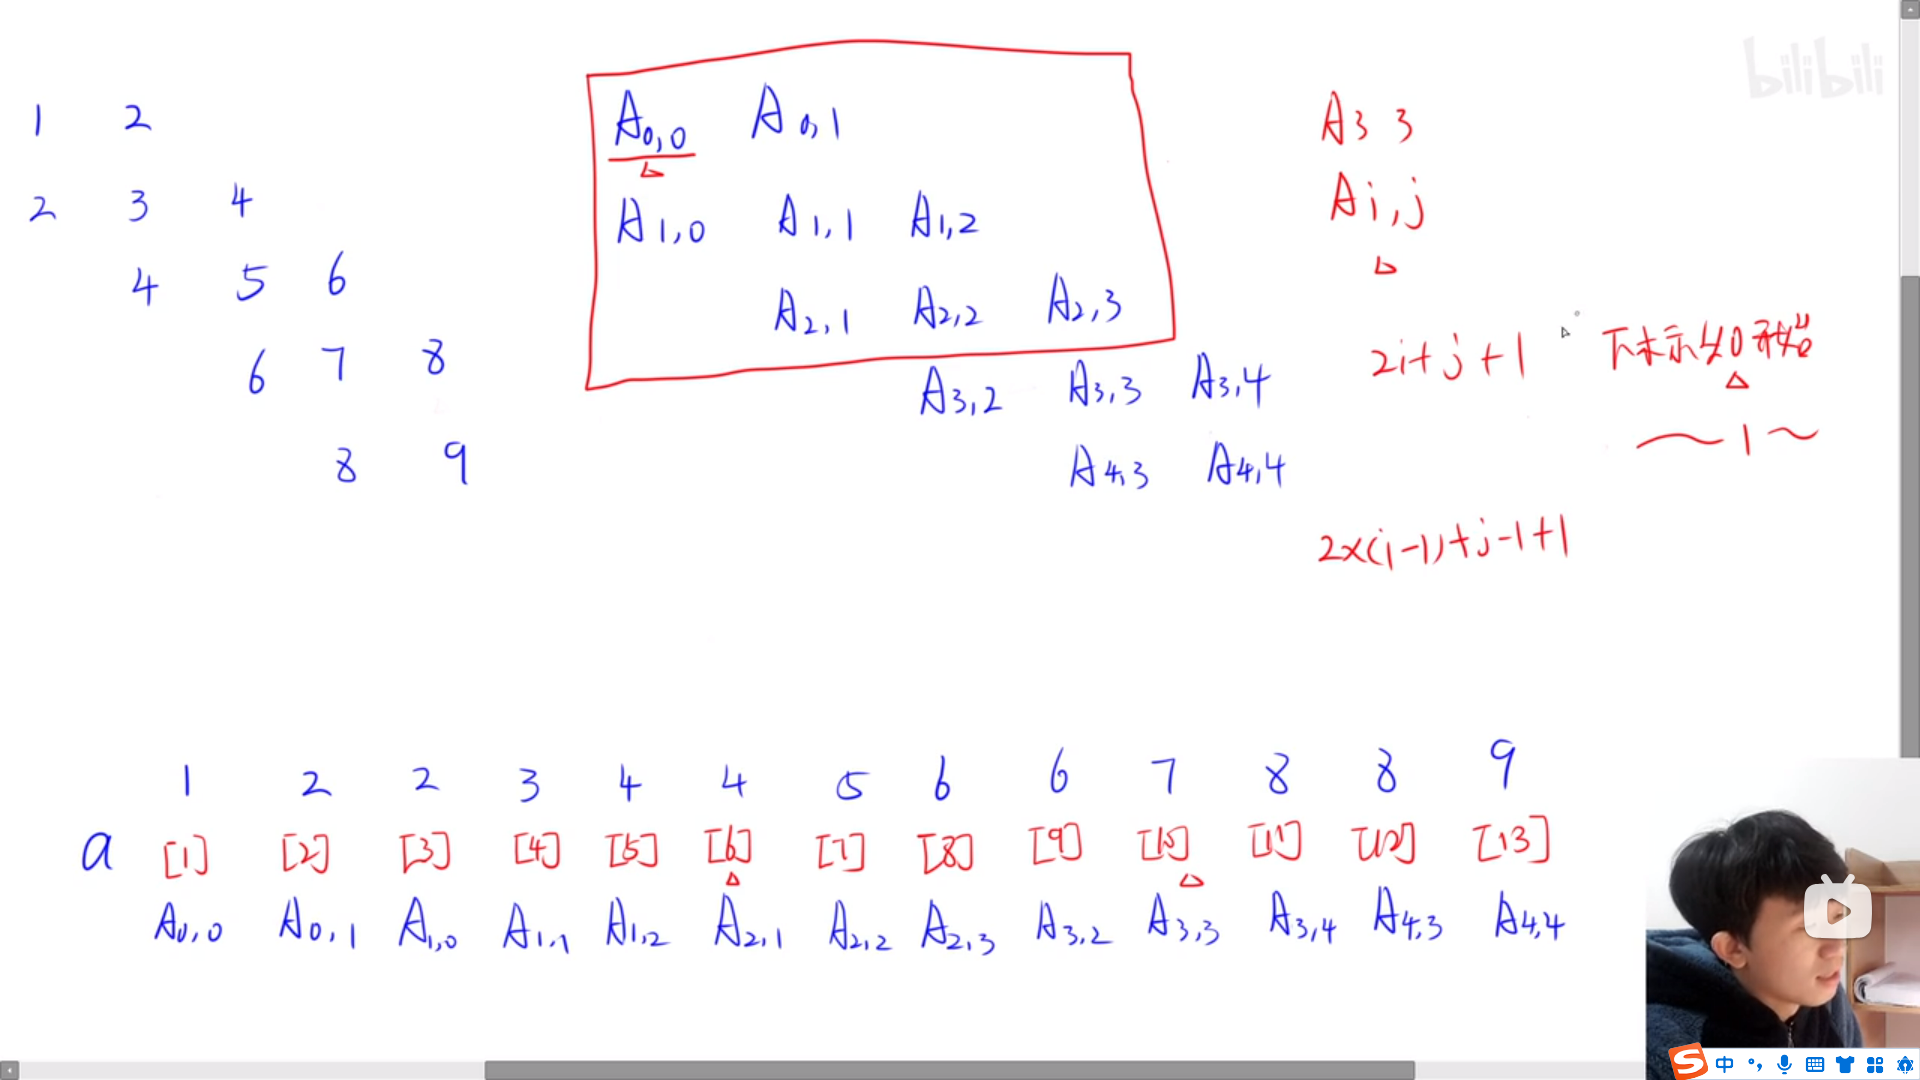 bilibili
1 2
2 3 4
4 5 6
6 7 8
8 9
A0,0 A0,1
A1,0 A1,1 A1,2
A2,1 A2,2 A2,3
A3,2 A3,3 A3,4
A4,3 A4,4
A3 3
Ai,j
2i+j+1 下标从0开始
~1~
2×(i-1)+j-1+1
1 2 2 3 4 4 5 6 6 7 8 8 9
a [1] [2] [3] [4] [5] [6] [7] [8] [9] [10] [11] [12] [13]
A0,0 A0,1 A1,0 A1,1 A1,2 A2,1 A2,2 A2,3 A3,2 A3,3 A3,4 A4,3 A4,4
S 中